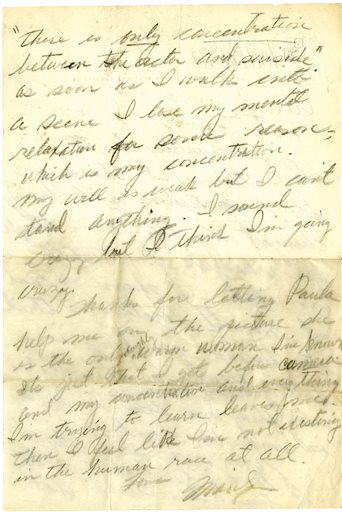 "there is only concentration
between the actor and suicide."
as soon as I walk into
a scene I lose my mental
relaxation for some reason –
which is my concentration.
my will is weak but I can't
stand anything. I sound
crazy but I think I'm going
crazy.
Thanks for letting Paula
help me on the picture she
is the only really warm woman I've known
It's just that I get before camera
and my concentration and everything
I'm trying to learn leaves me.
then I feel like I'm not existing
in the human race at all.
Love
Marilyn